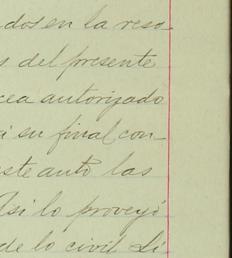 dos en la reso-
s del presente
cea autorizado
á su final con-
este auto las
Así lo proveyó
de lo civil Li